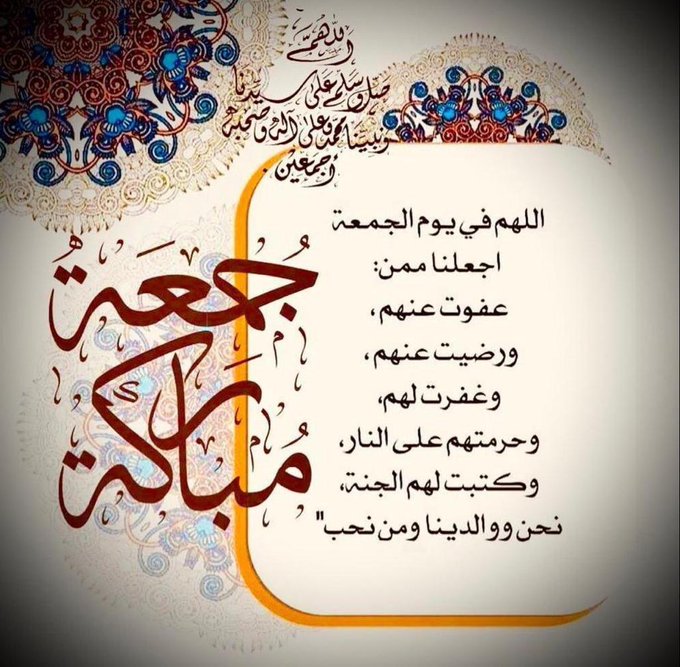 اللهم
صل وسلم على سيدنا
ونبينا محمد وعلى آله وصحبه
أجمعين
جُمعَةٌ
مُبَارَكَة
اللهم في يوم الجمعة
اجعلنا ممن:
عفوت عنهم،
ورضيت عنهم،
وغفرت لهم،
وحرمتهم على النار،
وكتبت لهم الجنة،
نحن ووالدينا ومن نحب"